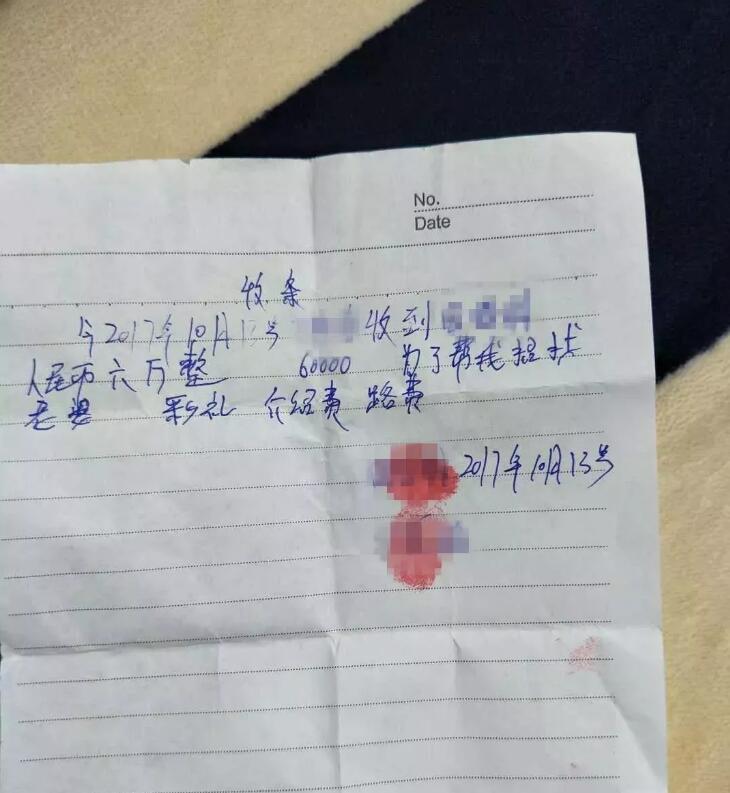 No.
Date
收条
今2017年10月13号 收到
人民币六万整 60000 为了帮我提扶
老婆 彩礼 介绍费 路费
2017年10月13号